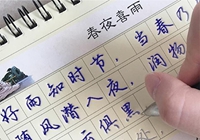 春夜喜雨
好雨知时节，当春乃
随风潜入夜，润物
云俱黑